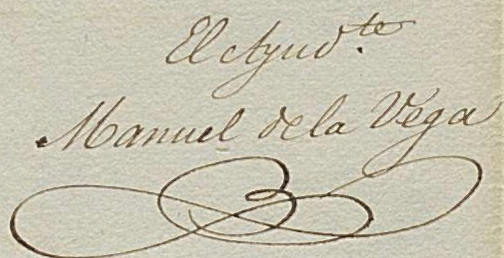 El Ayud.te
Manuel de la Vega